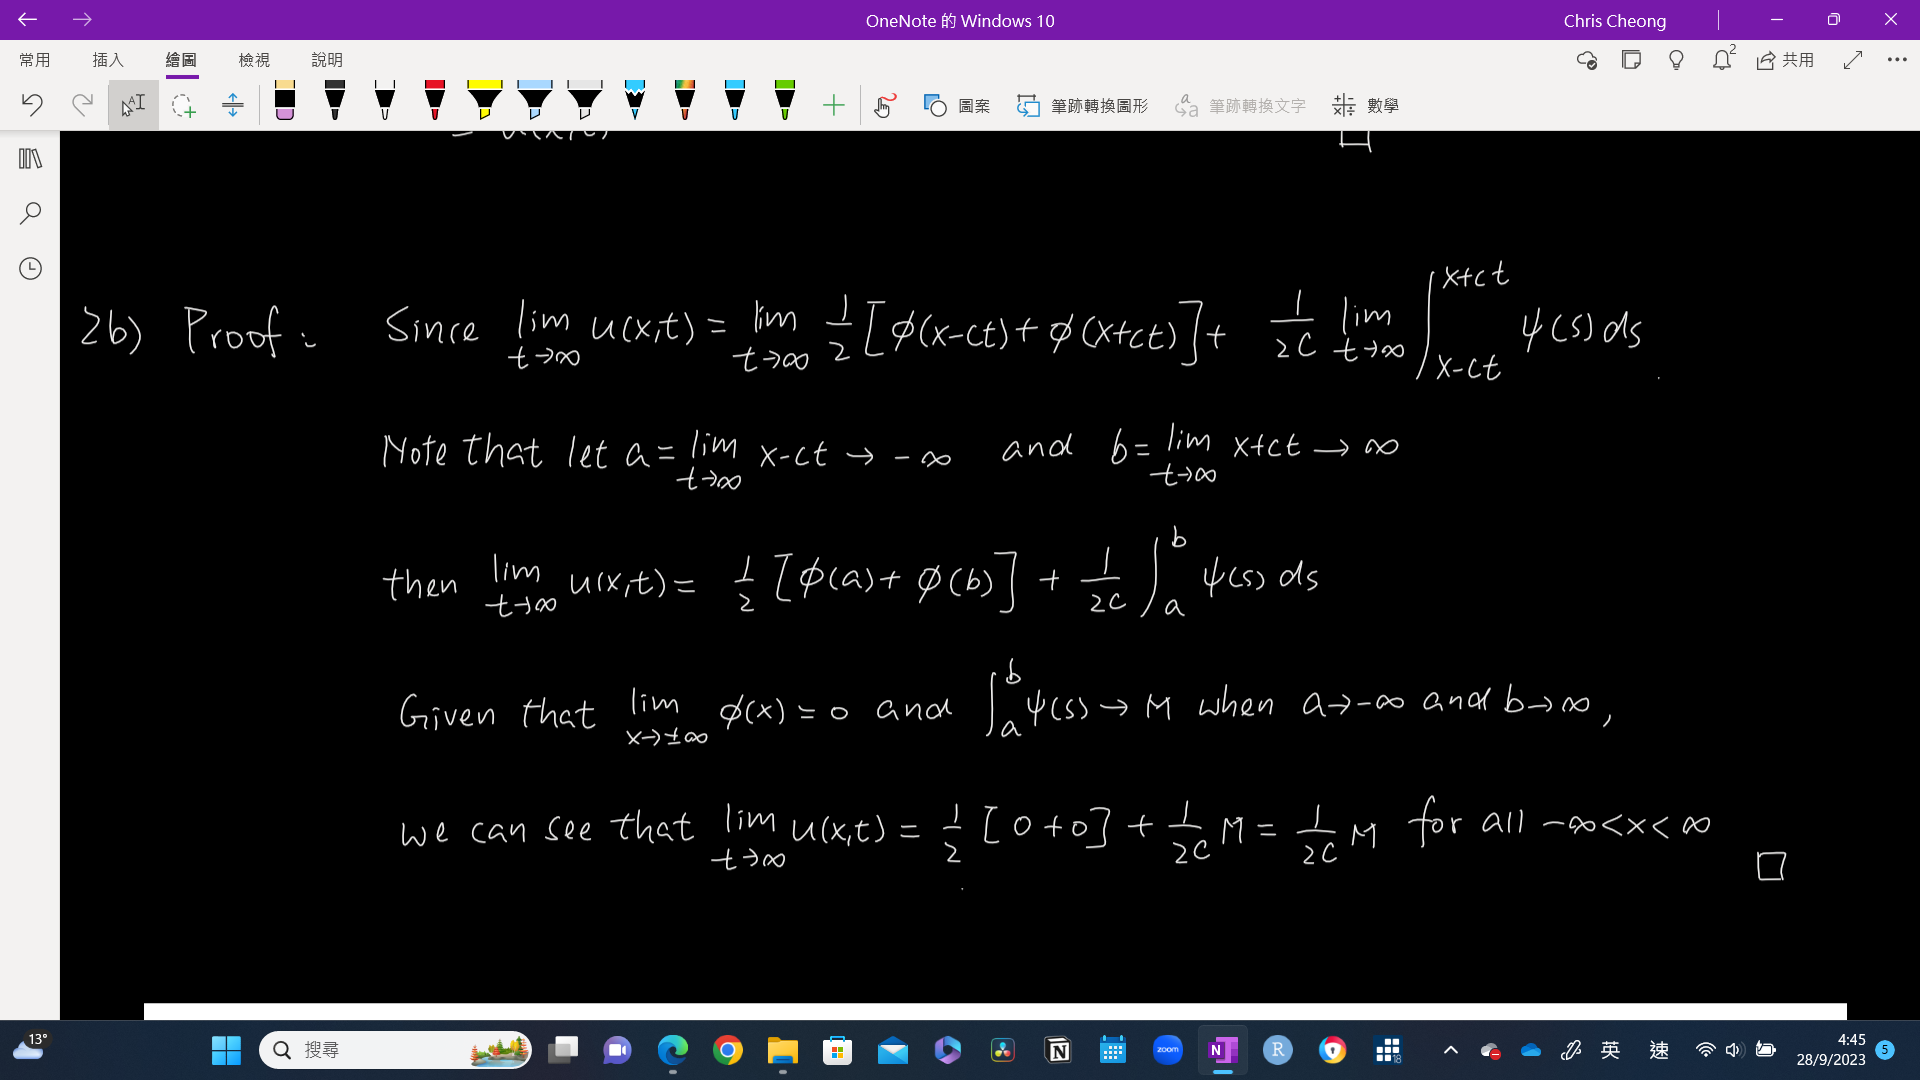 OneNote 的 Windows 10
Chris Cheong
常用 插入 繪圖 檢視 說明
2
共用
圖案 筆跡轉換圖形 筆跡轉換文字 數學
= u(x,t) □
2b) Proof: Since lim_{t→∞} u(x,t) = lim_{t→∞} 1/2 [φ(x-ct) + φ(x+ct)] + 1/2c lim_{t→∞} ∫_{x-ct}^{x+ct} ψ(s) ds
Note that let a = lim_{t→∞} x-ct → -∞ and b = lim_{t→∞} x+ct → ∞
then lim_{t→∞} u(x,t) = 1/2 [φ(a) + φ(b)] + 1/2c ∫_a^b ψ(s) ds
Given that lim_{x→±∞} φ(x) = 0 and ∫_a^b ψ(s) → M when a→-∞ and b→∞,
we can see that lim_{t→∞} u(x,t) = 1/2 [0+0] + 1/2c M = 1/2c M for all -∞<x<∞
□
13°
搜尋
zoom
N
R
18
英
速
4:45
28/9/2023
5